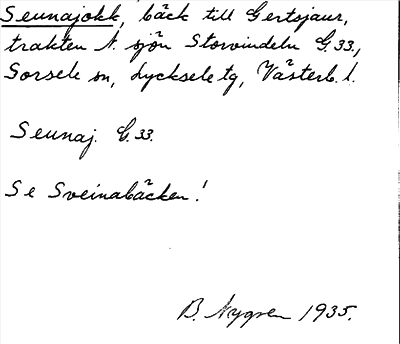 Seunajokk, bäck till Gertsjaur,
trakten N. sjön Storvindeln G.33.,
Sorsele sn, Lycksele tg, Västerb. l.
Seunaj. G.33.
Se Sveinabäcken!
B. Nygren 1935.